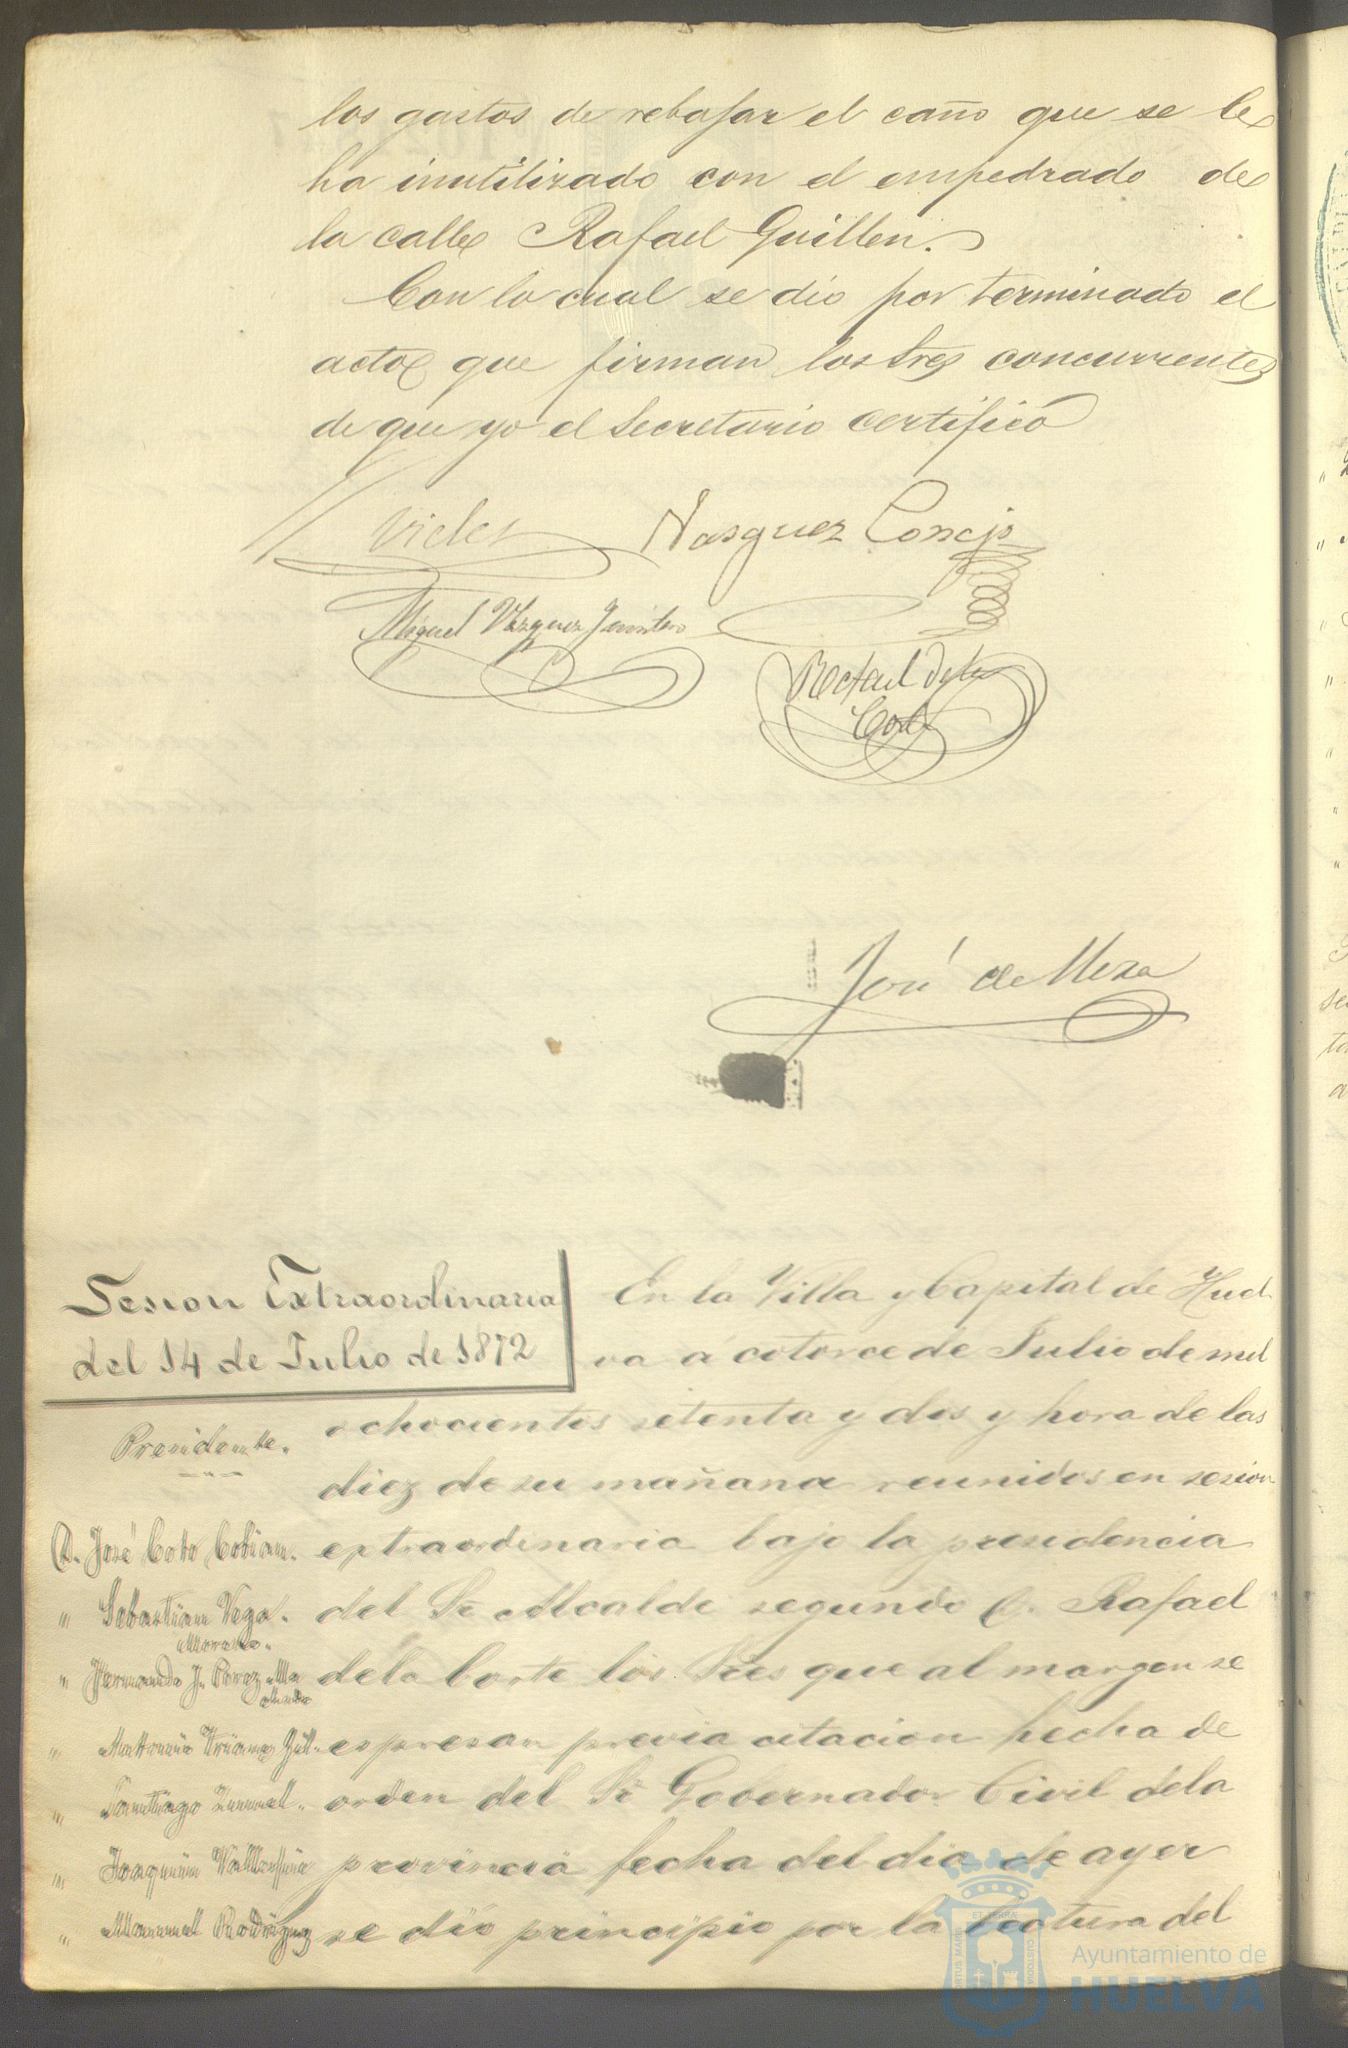 los gastos de rebajar el caño que se le
ha inutilizado con el empedrado de
la calle Rafael Guillen.
Con lo cual se dio por terminado el
acto que firman los Sres concurrentes
de que yo el Secretario certifico
Vides Vasquez Conejo
Miguel Vazquez
Rafael de la
Corte
José de Meza
Sesion Extraordinaria
del 14 de Julio de 1872
Presidente.
D. José Coto Cobian.
" Sebastian Vega
Morano.
" Fernando J. Perez
" Antonio Triano
" Santiago
" Joaquin
" Manuel Rodriguez
En la Villa y Capital de Huel
va a catorce de Julio de mil
ochocientos setenta y dos y hora de las
diez de su mañana reunidos en sesion
extraordinaria bajo la presidencia
del Sr Alcalde segundo D. Rafael
dela Corte los Sres que al margen se
espresan previa citacion hecha de
orden del Sr Gobernador Civil dela
provincia fecha del dia de ayer
se dio principio por la lectura del
Ayuntamiento de
HUELVA